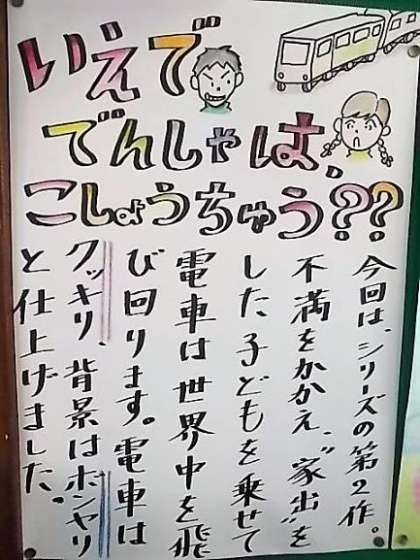 いえで
でんしゃは、
こしょうちゅう??
今回は、シリーズの第2作。
不満をかかえ、“家出”を
した子どもを乗せて
電車は世界中を飛
び回ります。電車は
クッキリ、背景はボンヤリ
と仕上げました。